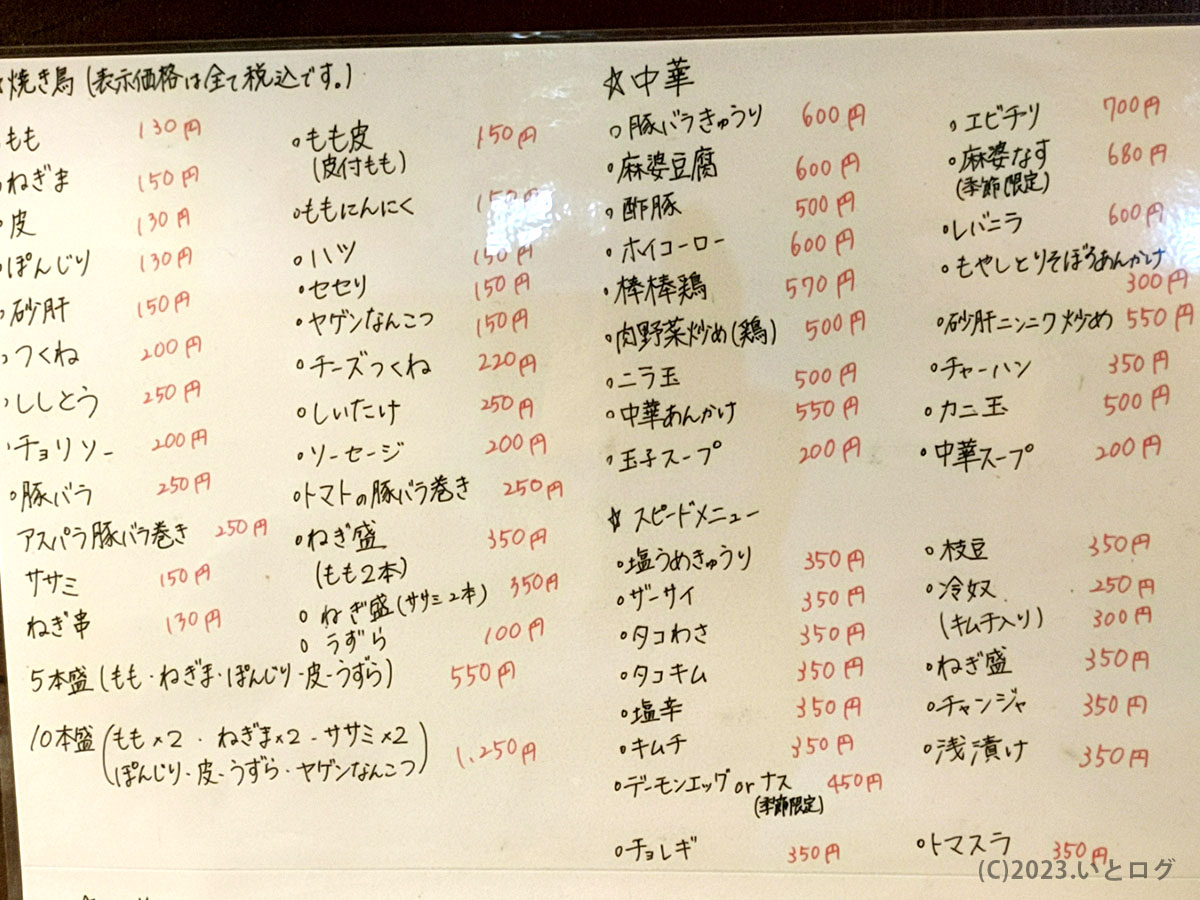 焼き鳥 (表示価格は全て税込です。)
もも 130円
ねぎま 150円
皮 130円
ぽんじり 130円
砂肝 150円
つくね 200円
ししとう 250円
チョリソー 200円
豚バラ 250円
アスパラ豚バラ巻き 250円
ササミ 150円
ねぎ串 130円
もも皮 150円
(皮付もも)
ももにんにく 150円
ハツ 150円
セセリ 150円
ヤゲンなんこつ 150円
チーズつくね 220円
しいたけ 250円
ソーセージ 200円
トマトの豚バラ巻き 250円
ねぎ盛 350円
(もも2本)
ねぎ盛(ササミ2本) 350円
うずら 100円
5本盛(もも・ねぎま・ぽんじり・皮・うずら) 550円
10本盛(もも×2・ねぎま×2・ササミ×2
ぽんじり・皮・うずら・ヤゲンなんこつ) 1,250円
☆中華
豚バラきゅうり 600円
麻婆豆腐 600円
酢豚 500円
ホイコーロー 600円
棒棒鶏 570円
肉野菜炒め(鶏) 500円
ニラ玉 500円
中華あんかけ 550円
玉子スープ 200円
エビチリ 700円
麻婆なす 680円
(季節限定)
レバニラ 600円
もやしとりそぼろあんかけ
300円
砂肝ニンニク炒め 550円
チャーハン 350円
カニ玉 500円
中華スープ 200円
☆スピードメニュー
塩うめきゅうり 350円
ザーサイ 350円
タコわさ 350円
タコキム 350円
塩辛 350円
キムチ 350円
デーモンエッグorナス 450円
(季節限定)
チョレギ 350円
枝豆 350円
冷奴 250円
(キムチ入り) 300円
ねぎ盛 350円
チャンジャ 350円
浅漬け 350円
トマスラ 350円
(C)2023.いとログ